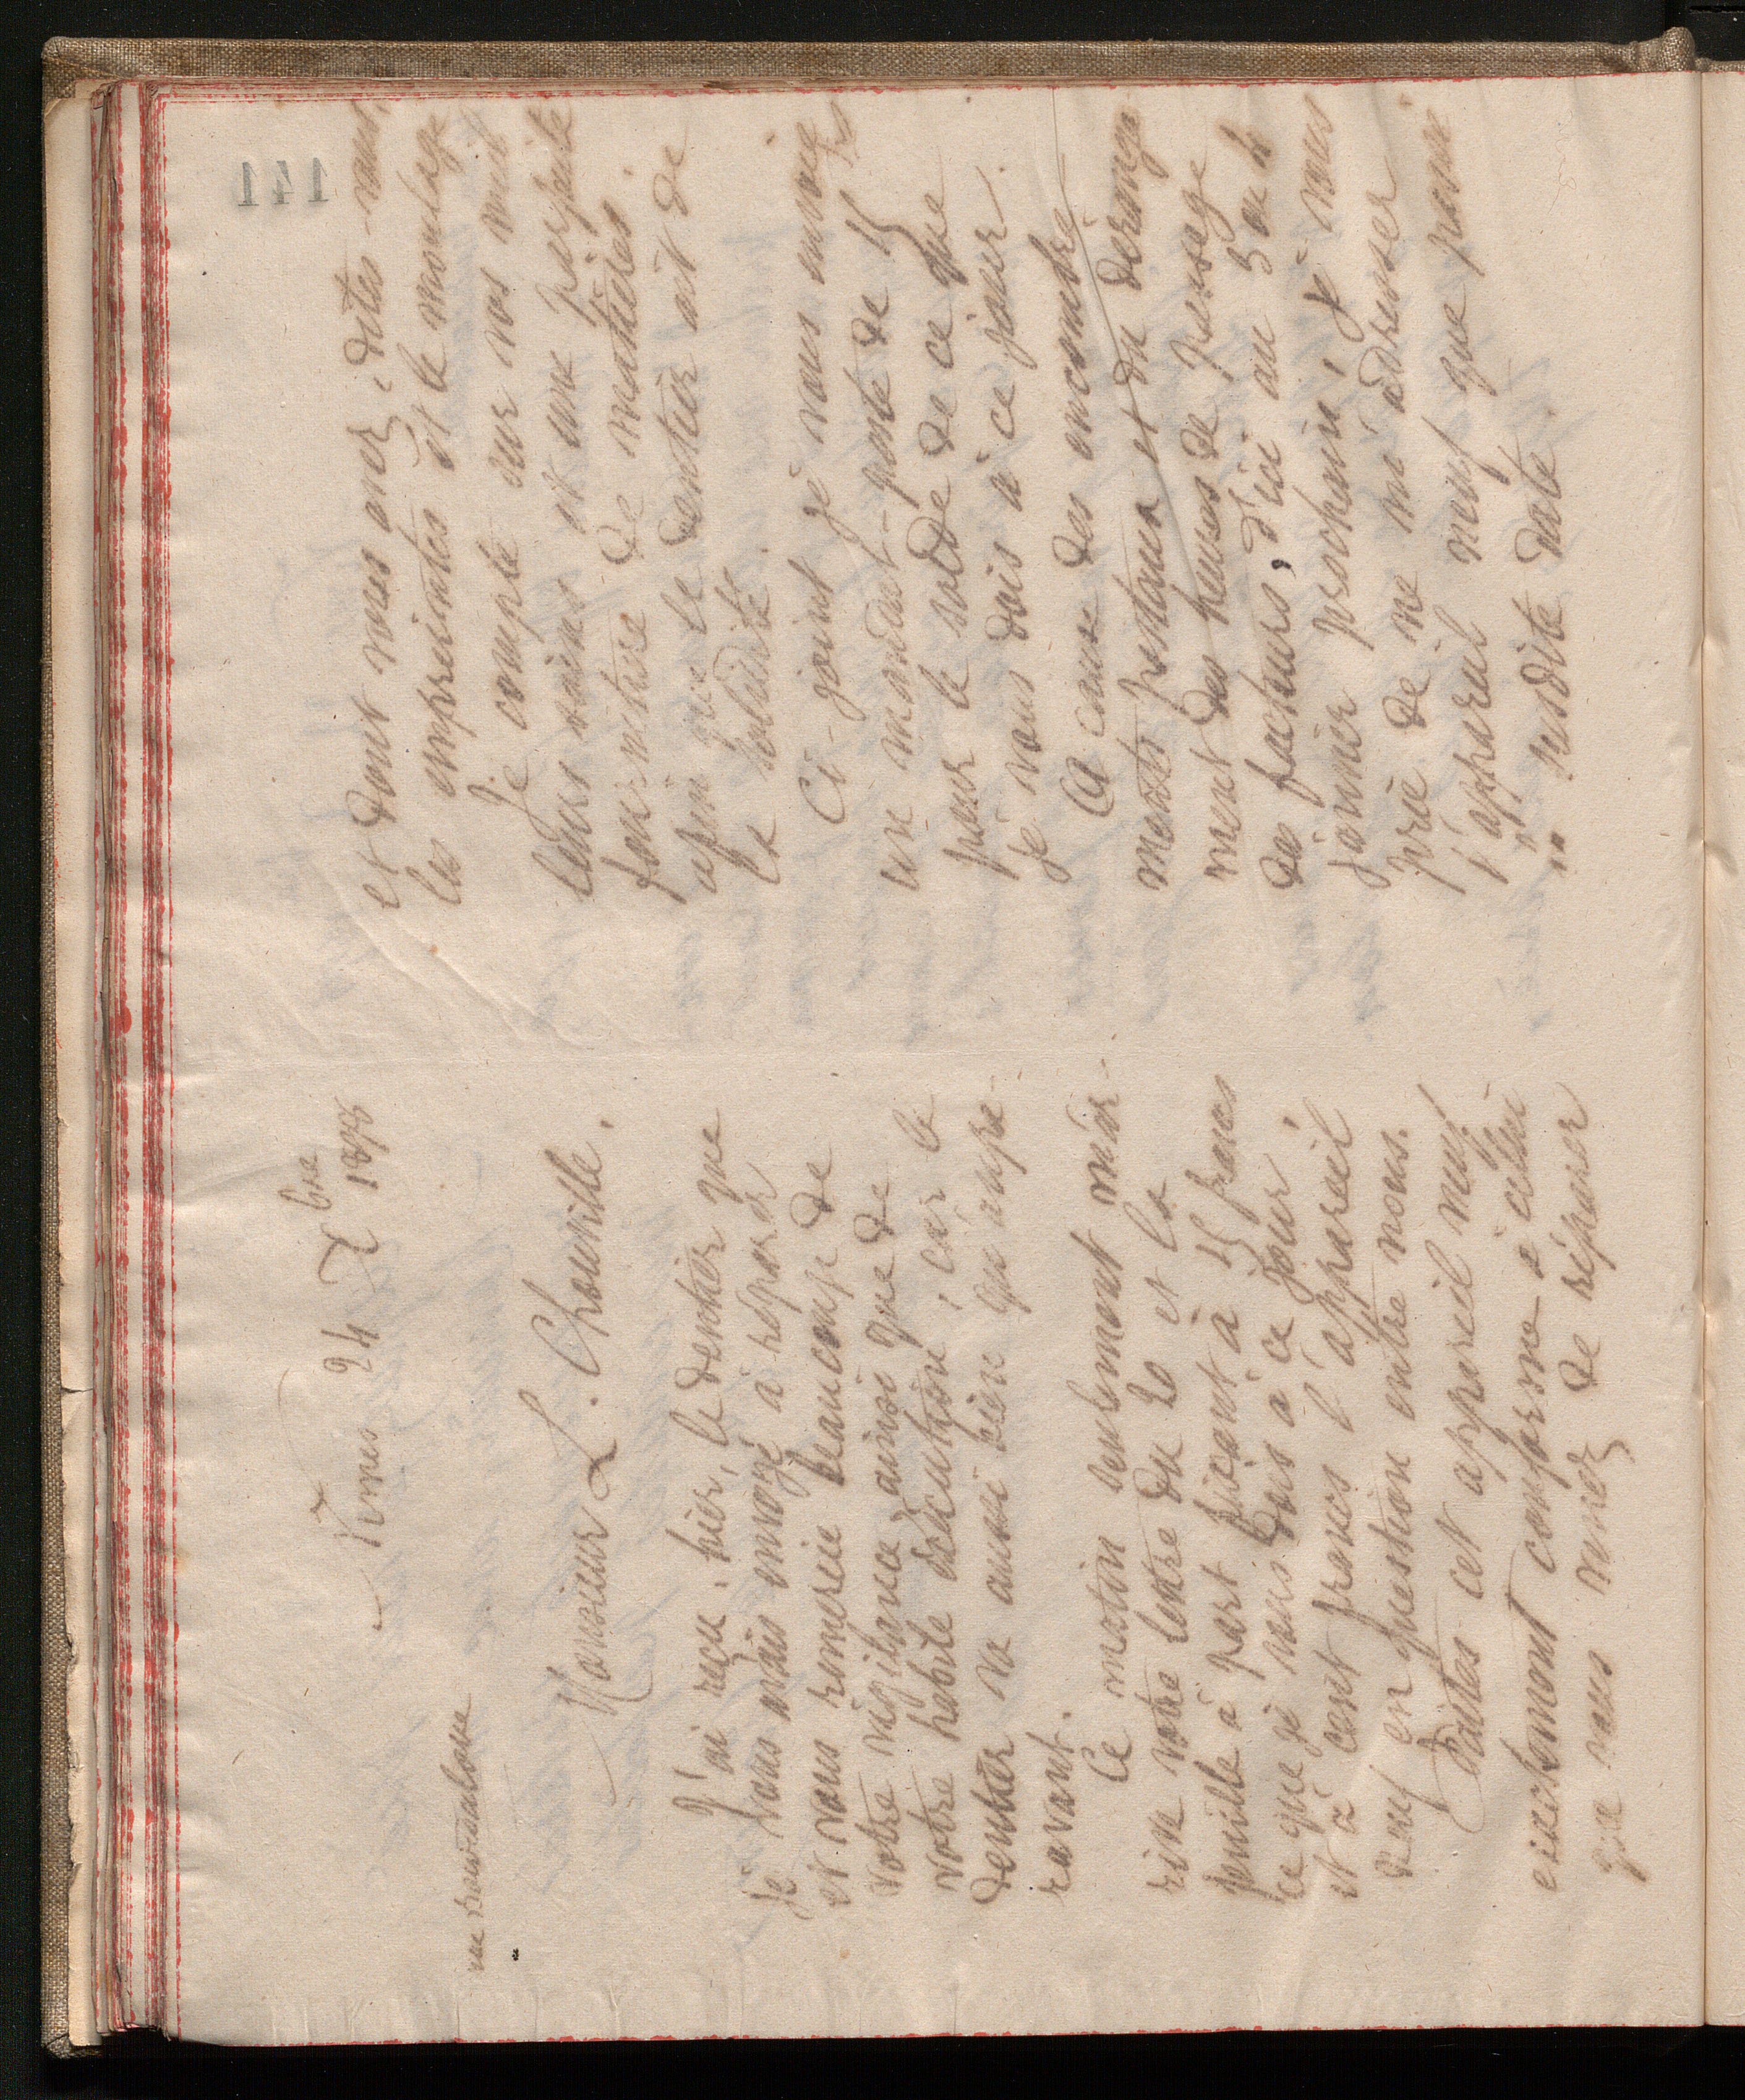 Nimes 24 Xbre 1895
rue
Monsieur L. Chouville.
J'ai reçu, hier, le dentier que
je vous avais envoyé à réparer
et vous remercie beaucoup de
votre vigilance, ainsi que de
votre habile exécution; car le
dentier va aussi bien qu'aupa-
ravant.
Ce matin seulement m'ar-
rive votre lettre du 20 et la
feuille à part fixant à 15 francs
ce que je vous dois à ce jour,
et à cent francs l'appareil
neuf en question entre nous.
Faites cet appareil neuf
exactement conforme à celui
que vous venez de réparer
et dont vous avez, dites-vous,
les empreintes et le moulage
Je compte sur vos meil
leurs soins et une parfaite
fourniture de matières.
afin que le dentier ait de
la solidité.
Ci-joint je vous envoie
un mandat-poste de 15 frs
pour le solde de ce que
je vous dois à ce jour.
A cause des encombre
ments postaux et du dérange
ment des heures de passage
des facteurs, d'ici au 3 ou 4
janvier prochain, je vous
prie de ne m'adresser
l'appareil neuf que passé
" susdite date.
141